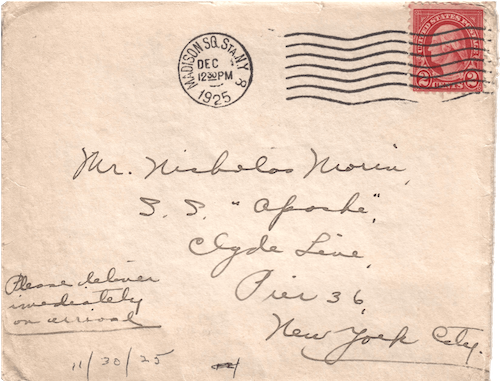 MADISON SQ. STA. N.Y. 8
DEC 1
12 30 PM
1925
UNITED STATES POSTAGE
2 CENTS 2
Mr. Nicholas Morin,
S. S. "Apache",
Clyde Line,
Pier 36,
New York City.
Please deliver
imediately
on arrival
11/30/25